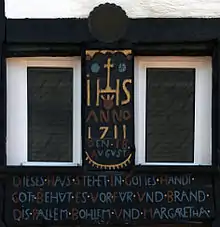 IHS
ANNO
1711
DEN 18
AUGUST
DIESES HAUS STEHET IN GOTTES HAND
GOT BEHUT ES VOR FUR UND BRAND
BOHLEM UND MARGARETHA